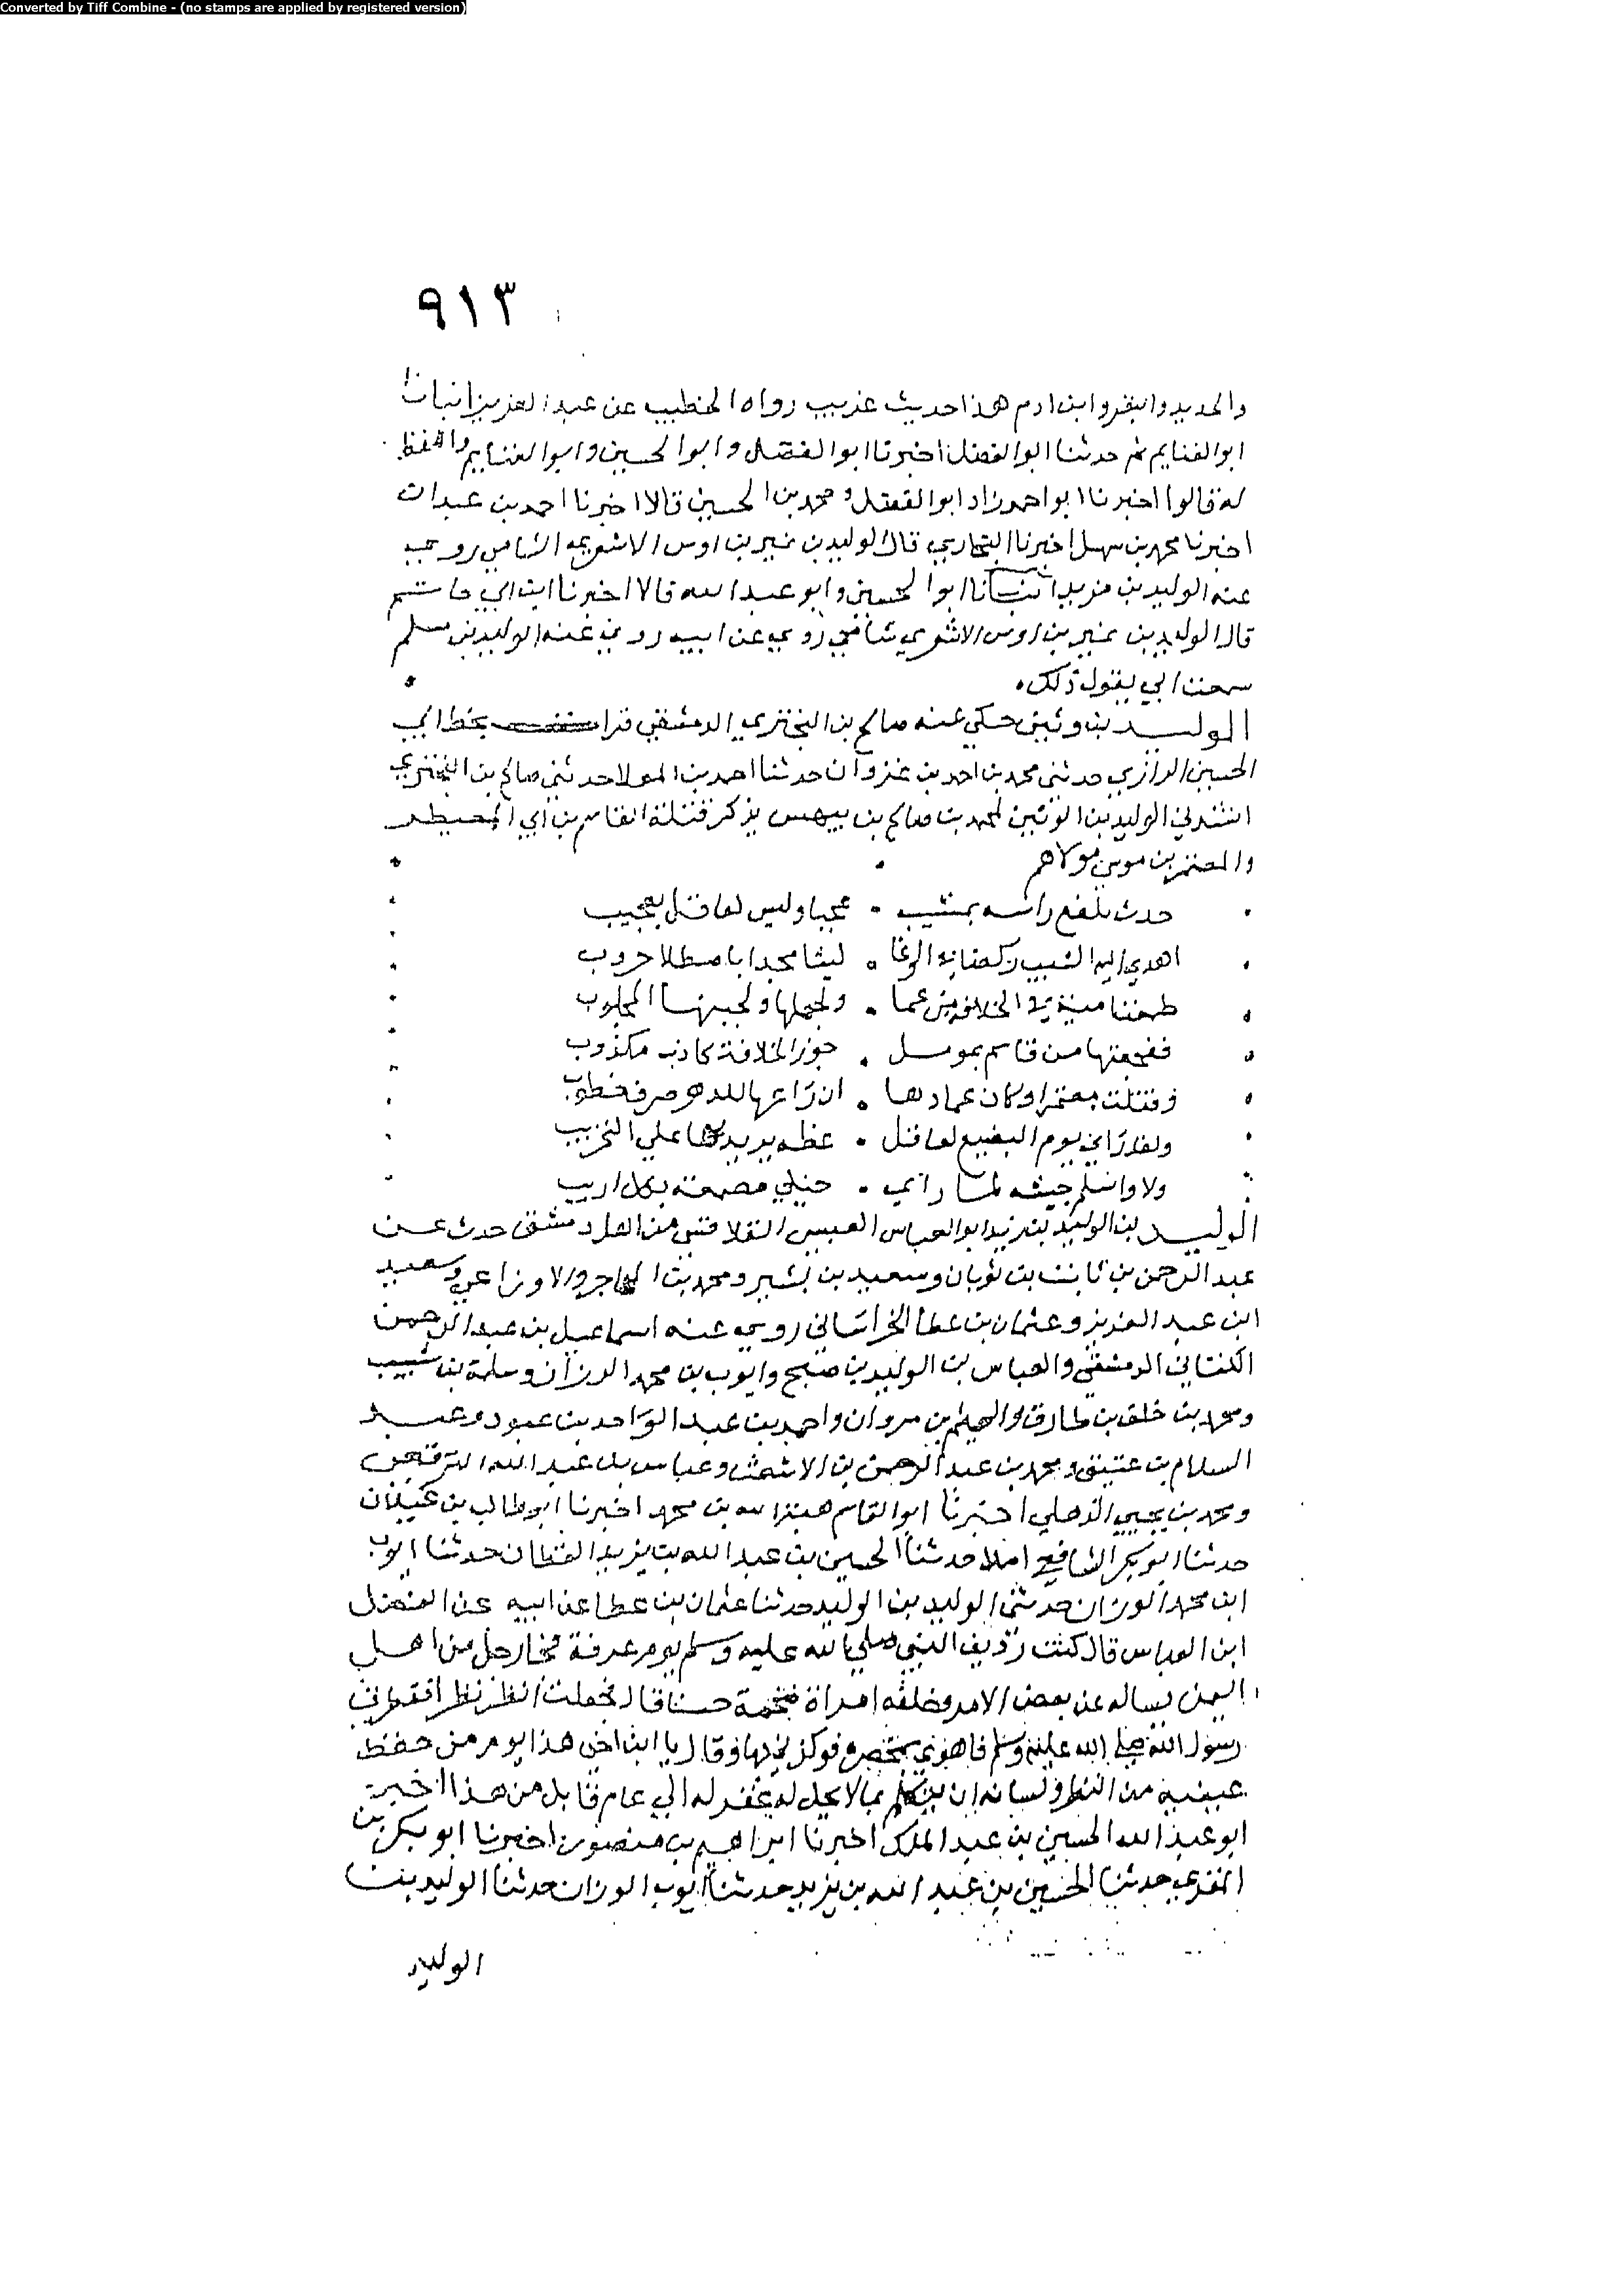 Converted by Tiff Combine - (no stamps are applied by registered version)
٩١٣
والحديد والبقر وابن ادم هذا حديث غريب رواه الخطيب عن عبد العزيز انبانا
ابو الغنايم ثم حدثنا ابو الفضل اخبرنا ابو الفضل وابو الحسين وابو الغنايم واللفظ
له قالوا اخبرنا ابو احمد زاد ابو الفضل ومحمد بن الحسين قالا اخبرنا احمد بن عبدان
اخبرنا محمد بن سهل اخبرنا البخاري قال الوليد بن نمير بن اوس الاشعري الشامي روي
عنه الوليد بن مزيد انبانا ابو الحسين وابو عبد الله قالا اخبرنا ابن ابي حاتم
قال الوليد بن نمير بن اوس الاشعري شامي روي عن ابيه روي عنه الوليد بن مسلم
سمعت ابي يقول ذلك
الوليد بن وثين حكي عنه صالح بن البختري الدمشقي قرات بخط ابي
الحسين الرازي حدثني محمد بن احمد بن غزوان حدثنا احمد بن المعلا حدثني صالح بن البختري
انشدني الوليد بن الوثين لمحمد بن صالح بن بيهس يذكر قتلة القاسم بن ابي العميطر
والمعتمر بن موسي مولاهم
حدث تلفع راسه بمشيب عجبا وليس لعاقل بعجيب
اهدي اليه الشيب ركضانه الوغا ليثا مجدا باصطلا حروب
طمعنا منية في الخلافة من عما ولجهلها ولحينها المجلوب
ففجعتها من قاسم بموسل حوز الخلافة كاذب مكذوب
وقتلت معتمرا وكان عمادها ان راعها للدهر صرف خطوب
ولقد راي يوم البقيع لعاقل عظه يريد بها علي التجريب
ولا واسلم جيشه لما راي حنلي مصمعة بكل اريب
الوليد بن الوليد بن زيد ابو العباس العبسي القلانسي من اهل دمشق حدث عن
عبد الرحمن بن ثابت بن ثوبان وسعيد بن بشير ومحمد بن المهاجر والاوزاعي وسعيد
ابن عبد العزيز وعثمان بن عطا الخراساني روي عنه اسماعيل بن عبد الرحمن
الكناني الدمشقي والعباس بن الوليد بن صبح وايوب بن محمد الوزان وسلمة بن شبيب
ومحمد بن خلف بن طارق والهيثم بن مروان واحمد بن عبد الواحد بن عبود وعبد
السلام بن عتيق ومحمد بن عبد الرحمن بن الاشعث وعباس بن عبد الله الترقفي
ومحمد بن يحيي الذهلي اخبرنا ابو القاسم هبة الله بن محمد اخبرنا ابو طالب بن غيلان
حدثنا ابو بكر الشافعي املا حدثنا الحسين بن عبد الله بن يزيد القطان حدثنا ايوب
ابن محمد الوزان حدثني الوليد بن الوليد حدثنا عثمان بن عطا عن ابيه عن الفضل
ابن العباس قال كنت رديف النبي صلي الله عليه وسلم يوم عرفة فجا رجل من اهل
اليمن يساله عن بعض الامر وخلفه امراة ضخمة حسنا قال فجعلت انظر نظرا فقطن
رسول الله صلي الله عليه وسلم فاهوي بمخصره فوكز فيها وقال يا ابن اخي هذا يوم من حفظ
عينيه من النظر ولسانه ان يتكلم بما لا يحل له غفر له الي عام قابل من هذا اخبرنا
ابو عبد الله الحسين بن عبد الملك اخبرنا ابراهيم بن منصور اخبرنا ابو بكر بن
المقري حدثنا الحسين بن عبد الله بن يزيد حدثنا ايوب الوزان حدثنا الوليد بن
الوليد